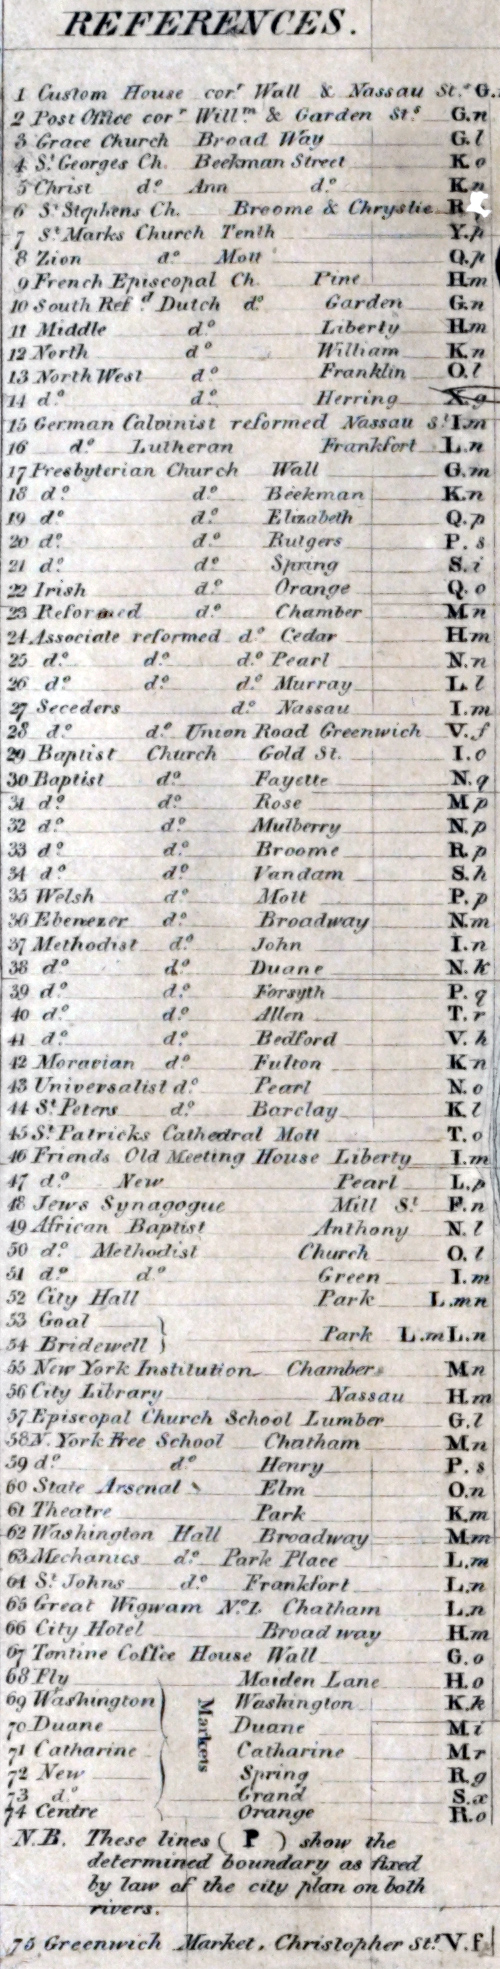 REFERENCES.
1 Custom House cor.r Wall & Nassau St.s G.
2 Post Office cor r Will.m & Garden St.s G.n
3 Grace Church Broad Way G.l
4 S.t Georges Ch. Beekman Street K.o
5 Christ d.o Ann d.o K.n
6 S.t Stephens Ch. Broome & Chrystie R
7 S.t Marks Church Tenth Y.p
8 Zion d.o Mott Q.p
9 French Episcopal Ch. Pine H.m
10 South Ref.d Dutch d.o Garden G.n
11 Middle d.o Liberty H.m
12 North d.o William K.n
13 North West d.o Franklin O.l
14 d.o d.o Herring X.g
15 German Calvinist reformed Nassau s.t I.m
16 d.o Lutheran Frankfort L.n
17 Presbyterian Church Wall G.m
18 d.o d.o Beekman K.n
19 d.o d.o Elizabeth Q.p
20 d.o d.o Rutgers P.s
21 d.o d.o Spring S.i
22 Irish d.o Orange Q.o
23 Reformed d.o Chamber M.n
24 Associate reformed d.o Cedar H.m
25 d.o d.o d.o Pearl N.n
26 d.o d.o d.o Murray L.l
27 Seceders d.o Nassau I.m
28 d.o d.o Union Road Greenwich V.f
29 Baptist Church Gold St. I.o
30 Baptist d.o Fayette N.q
31 d.o d.o Rose M.p
32 d.o d.o Mulberry N.p
33 d.o d.o Broome R.p
34 d.o d.o Vandam S.h
35 Welsh d.o Mott P.p
36 Ebenezer d.o Broadway N.m
37 Methodist d.o John I.n
38 d.o d.o Duane N.k
39 d.o d.o Forsyth P.q
40 d.o d.o Allen T.r
41 d.o d.o Bedford V.h
42 Moravian d.o Fulton K.n
43 Universalist d.o Pearl N.o
44 S.t Peters d.o Barclay K.l
45 S.t Patricks Cathedral Mott T.o
46 Friends Old Meeting House Liberty I.m
47 d.o New Pearl L.p
48 Jews Synagogue Mill S.t F.n
49 African Baptist Anthony N.l
50 d.o Methodist Church O.l
51 d.o d.o Green I.m
52 City Hall Park L.mn
53 Goal
54 Bridewell } Park L.m L.n
55 New York Institution Chambers M.n
56 City Library Nassau H.m
57 Episcopal Church School Lumber G.l
58 N. York Free School Chatham M.n
59 d.o d.o Henry P.s
60 State Arsenal Elm O.n
61 Theatre Park K.m
62 Washington Hall Broadway M.m
63 Mechanics d.o Park Place L.m
64 S.t Johns d.o Frankfort L.n
65 Great Wigwam N.o 1. Chatham L.n
66 City Hotel Broad way H.m
67 Tontine Coffee House Wall G.o
68 Fly Maiden Lane H.o
69 Washington Washington K.k
70 Duane Duane M.i
71 Catharine Catharine M.r
72 New Spring R.g
73 d.o Grand S.x
74 Centre Orange R.o
Markets
N.B. These lines ( P ) show the
determined boundary as fixed
by law of the city plan on both
rivers.
75 Greenwich Market, Christopher St. V.f